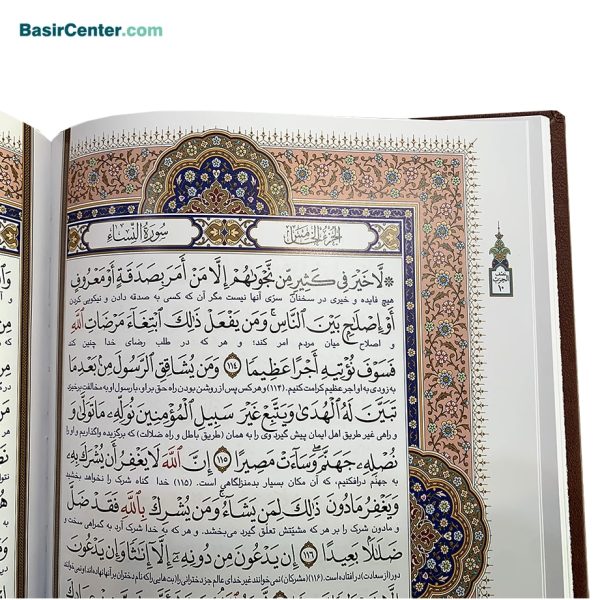 BasirCenter.com
سورة النساء
الجزء الخامس
لَّا خَيْرَ فِي كَثِيرٍ مِّن نَّجْوَاهُمْ إِلَّا مَنْ أَمَرَ بِصَدَقَةٍ أَوْ مَعْرُوفٍ
هیچ فایده و خیری در سخنان سرّی آنها نیست مگر آن که کسی به صدقه دادن و نیکویی کردن
أَوْ إِصْلَاحٍ بَيْنَ النَّاسِ وَمَن يَفْعَلْ ذَٰلِكَ ابْتِغَاءَ مَرْضَاتِ اللَّهِ
و اصلاح میان مردم امر کند؛ و هر که در طلب رضای خدا چنین کند
فَسَوْفَ نُؤْتِيهِ أَجْرًا عَظِيمًا ١١٤ وَمَن يُشَاقِقِ الرَّسُولَ مِن بَعْدِ مَا
به زودی به او اجر عظیم کرامت کنیم. (۱۱۴) و هر کس پس از روشن بودن راه حق بر او، با رسول او به مخالفت برخیزد
تَبَيَّنَ لَهُ الْهُدَىٰ وَيَتَّبِعْ غَيْرَ سَبِيلِ الْمُؤْمِنِينَ نُوَلِّهِ مَا تَوَلَّىٰ وَ
و راهی غیر طریق اهل ایمان پیش گیرد وی را به همان (طریق باطل و راه ضلالت) که برگزیده واگذاریم و او را
نُصْلِهِ جَهَنَّمَ وَسَاءَتْ مَصِيرًا ١١٥ إِنَّ اللَّهَ لَا يَغْفِرُ أَن يُشْرَكَ بِهِ
به جهنّم درافکنیم، که آن مکان بسیار بدمنزلگاهی است. (۱۱۵) خدا گناه شرک را نخواهد بخشید
وَيَغْفِرُ مَا دُونَ ذَٰلِكَ لِمَن يَشَاءُ وَمَن يُشْرِكْ بِاللَّهِ فَقَدْ ضَلَّ
و مادون شرک را بر هر که مشیّتش تعلق گیرد می‌بخشد. و هر که به خدا شرک آرد به گمراهی سخت و
ضَلَالًا بَعِيدًا ١١٦ إِن يَدْعُونَ مِن دُونِهِ إِلَّا إِنَاثًا وَإِن يَدْعُونَ
دور از سعادت) در افتاده است. (۱۱۶) (مشرکان) نمی‌خوانند غیر خدای عالم جز دخترانی را (بت‌هایی را که نام دختران بر آنها نهاده‌اند) و نمی‌خوانند